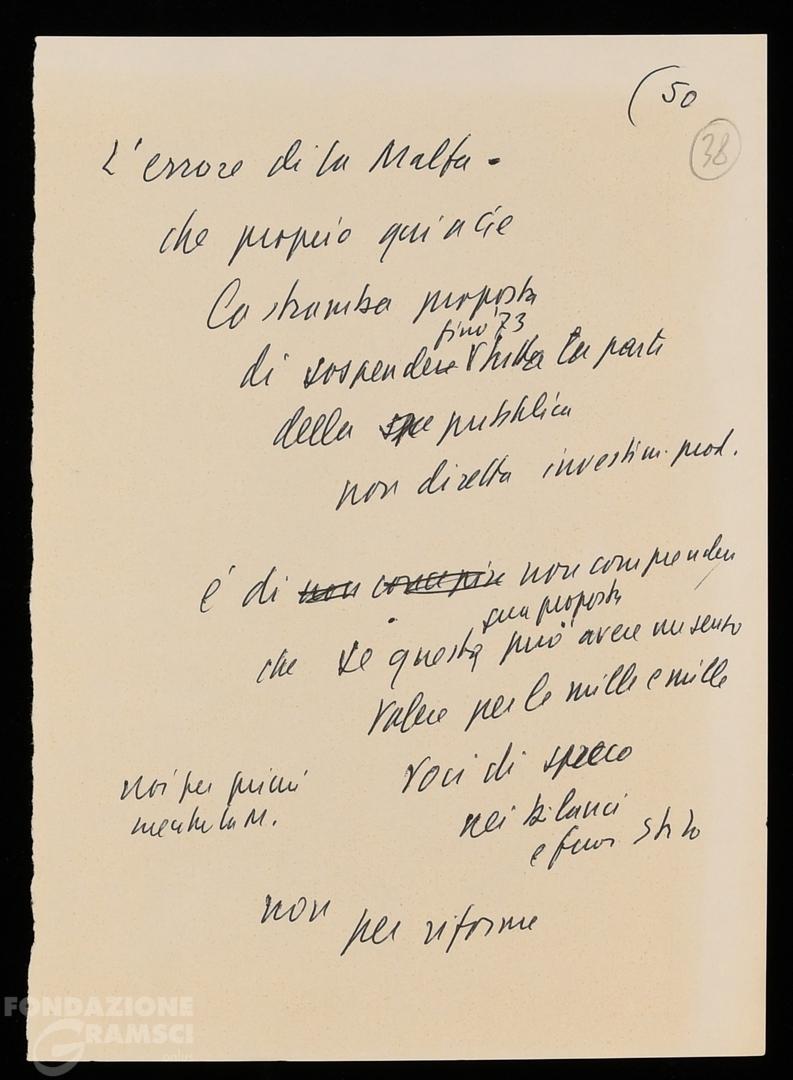 (50
38
L'errore di La Malfa -
che proprio qui a
la stramba proposta
fino '73
di sospendere tutta la parte
della spe pubblica
non diretta investim. prod.
è di non concepire non comprendere
sua proposta
che se questa può avere un senso
valere per le mille e mille
voci di spreco
noi per primi
mentre La M.
nei bilanci
e fuori Stato
non per riforme
FONDAZIONE
GRAMSCI